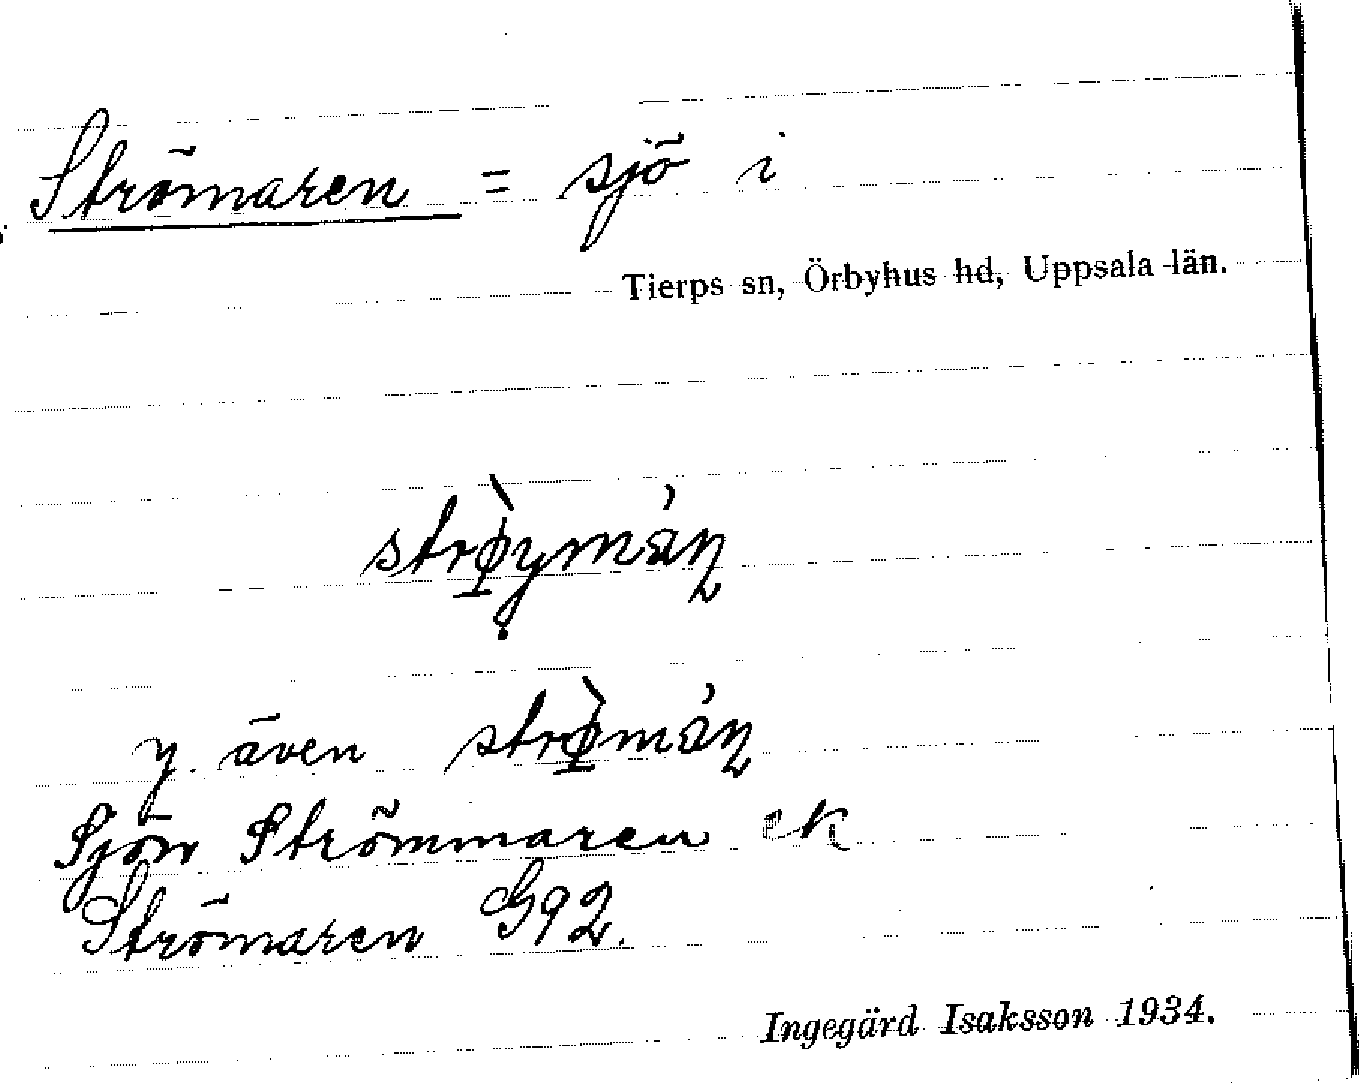 Strömaren = sjö i
Tierps sn, Örbyhus hd, Uppsala län.
strø̀ymáɳ
y. även strø̀máɳ
Sjön Strömmaren ek
Strömaren G92.
Ingegärd Isaksson 1934.